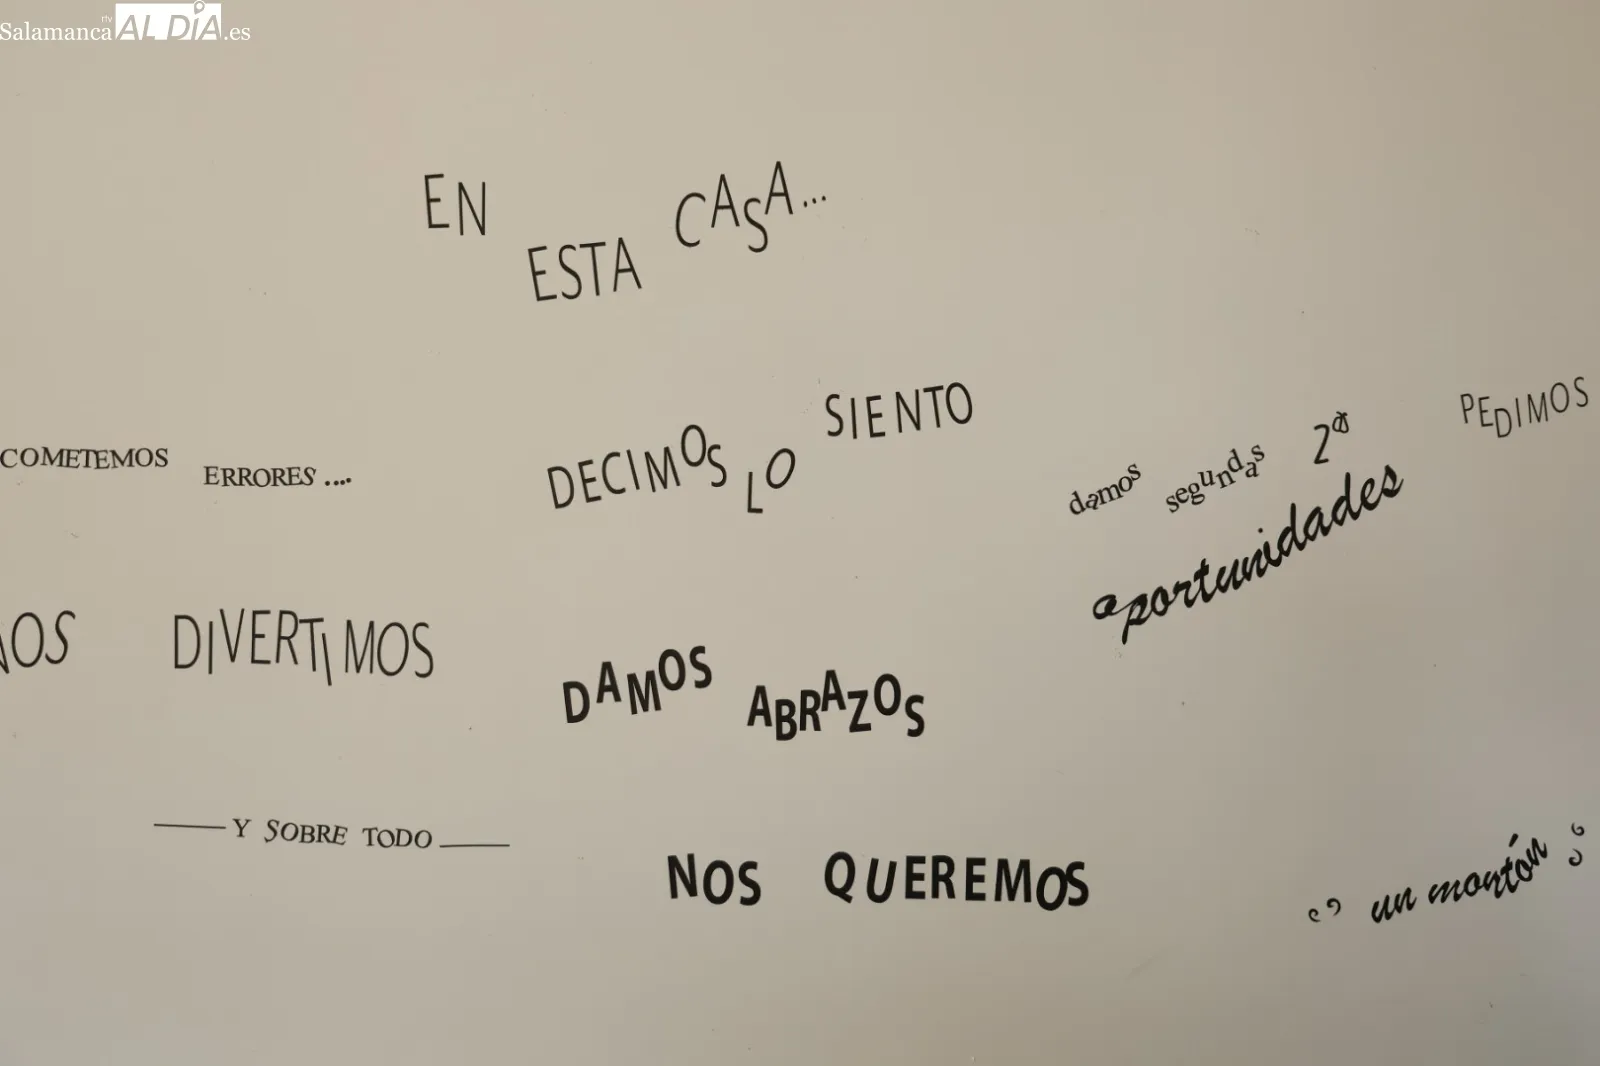 Salamanca rtv AL DÍA.es
EN ESTA CASA...
COMETEMOS ERRORES....
DECIMOS LO SIENTO
damos segundas 2as
oportunidades
PEDIMOS
NOS DIVERTIMOS
DAMOS ABRAZOS
Y SOBRE TODO
NOS QUEREMOS
un montón